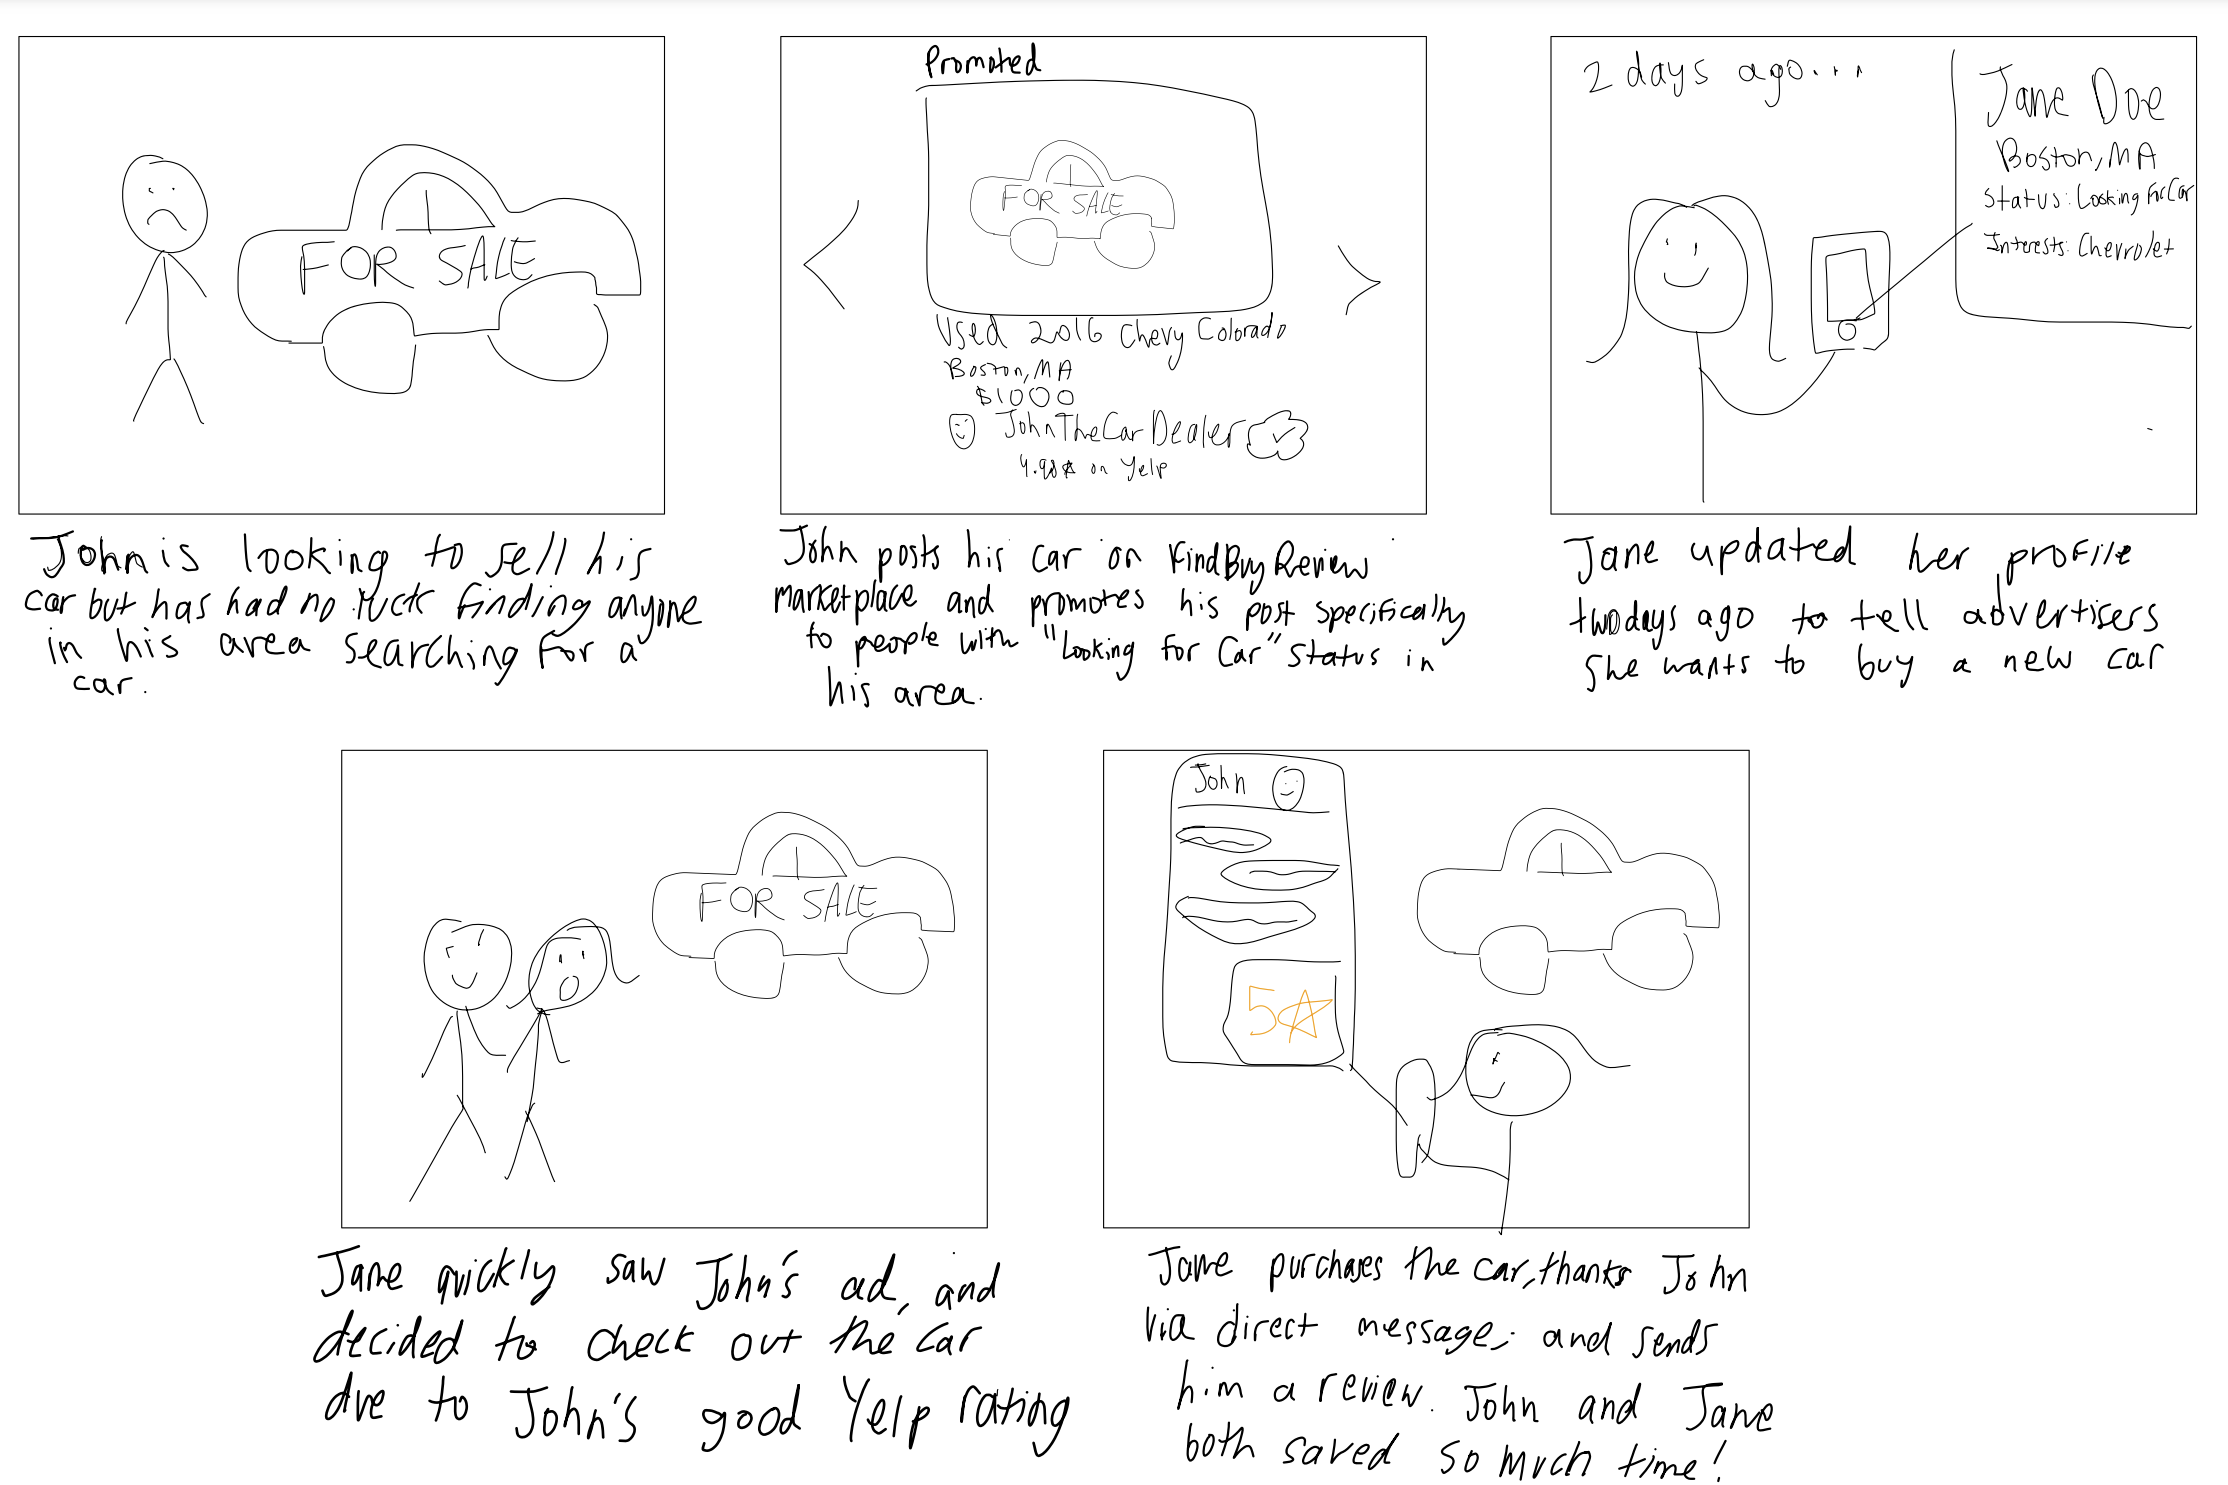 FOR SALE
John is looking to sell his
car but has had no luck finding anyone
in his area searching for a
car.
Promoted
FOR SALE
Used 2016 Chevy Colorado
Boston, MA
$1000
JohnTheCarDealer
4.98☆ on Yelp
John posts his car on FindBuyReview
marketplace and promotes his post specifically
to people with "Looking for Car" status in
his area.
2 days ago...
Jane Doe
Boston, MA
Status: Looking For Car
Interests: Chevrolet
Jane updated her profile
two days ago to tell advertisers
she wants to buy a new car
FOR SALE
Jane quickly saw John's ad, and
decided to check out the car
due to John's good Yelp rating
John
5☆
Jane purchases the car, thanks John
via direct message, and sends
him a review. John and Jane
both saved so much time!